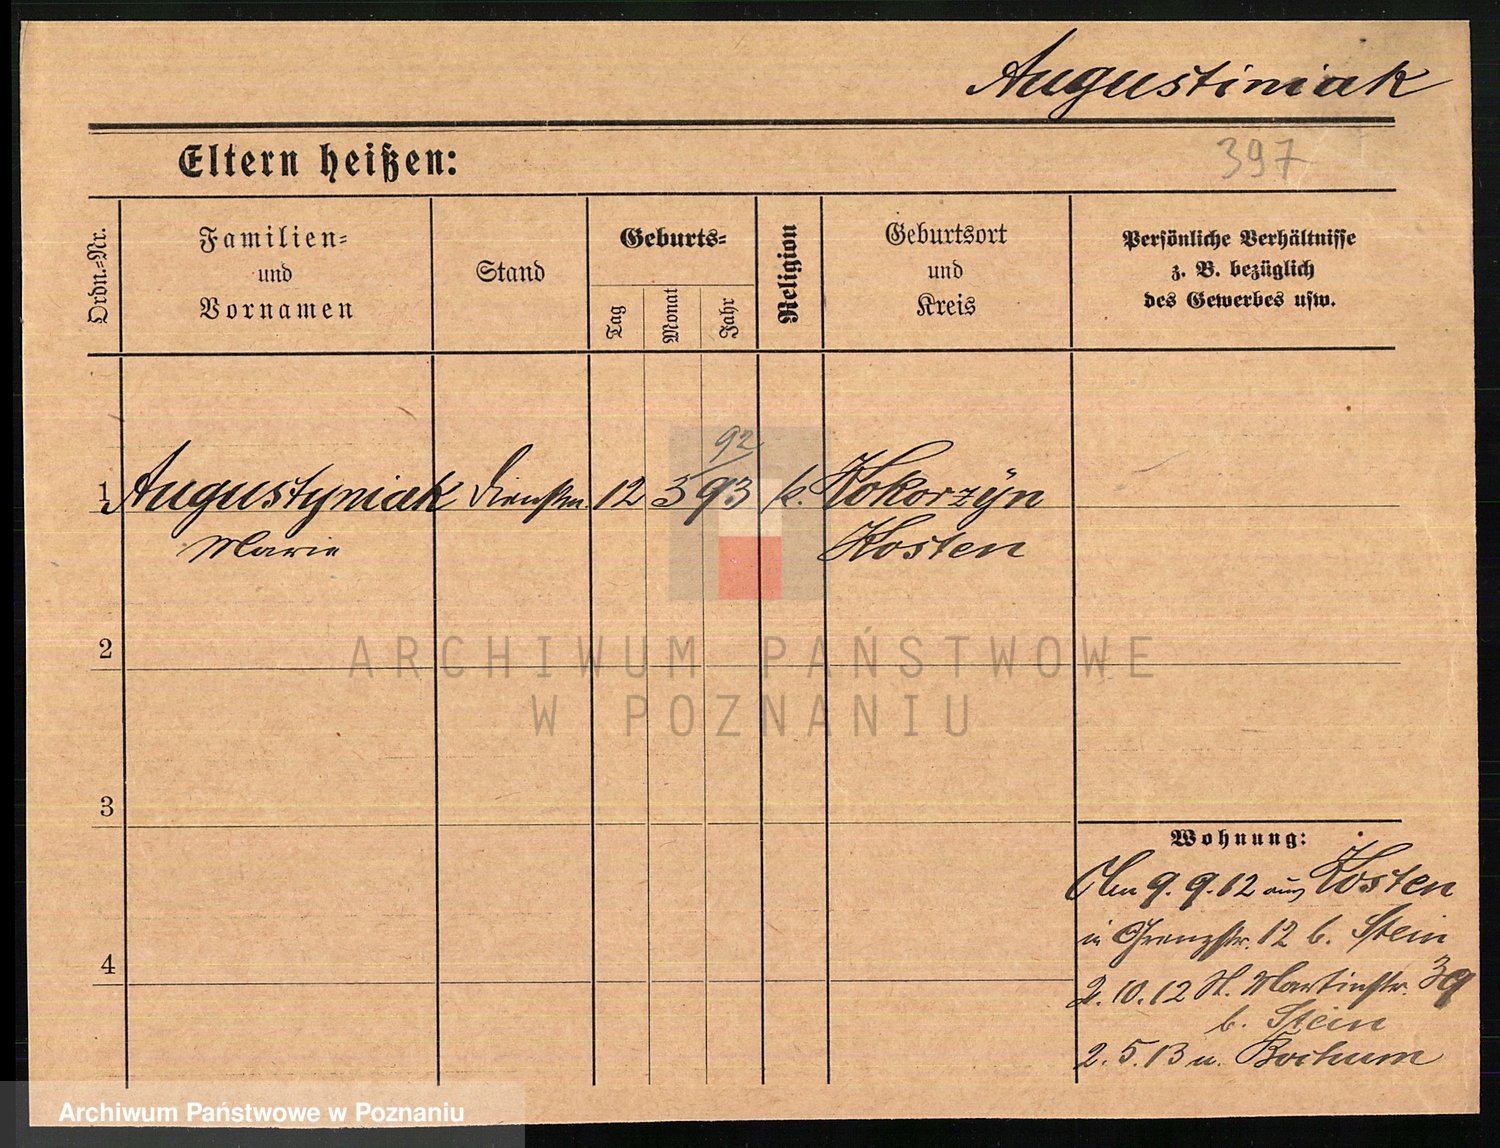 Augustiniak
397
Eltern heißen:
Ordn.=Nr.
Familien=
und
Vornamen
Stand
Geburts=
Tag
Monat
Jahr
Religion
Geburtsort
und
Kreis
Persönliche Verhältnisse
z. B. bezüglich
des Gewerbes usw.
92
1 Augustyniak Dienstm. 12 3 93 k. Kokorzyn
Marie Kosten
2
ARCHIWUM PAŃSTWOWE
W POZNANIU
3
Wohnung:
Am 9.9.12 aus Kosten
in Grenzstr. 12 b. Stein
2.10.12 St. Martinstr. 39
b. Stein
4
2.5.13 n. Bochum
Archiwum Państwowe w Poznaniu